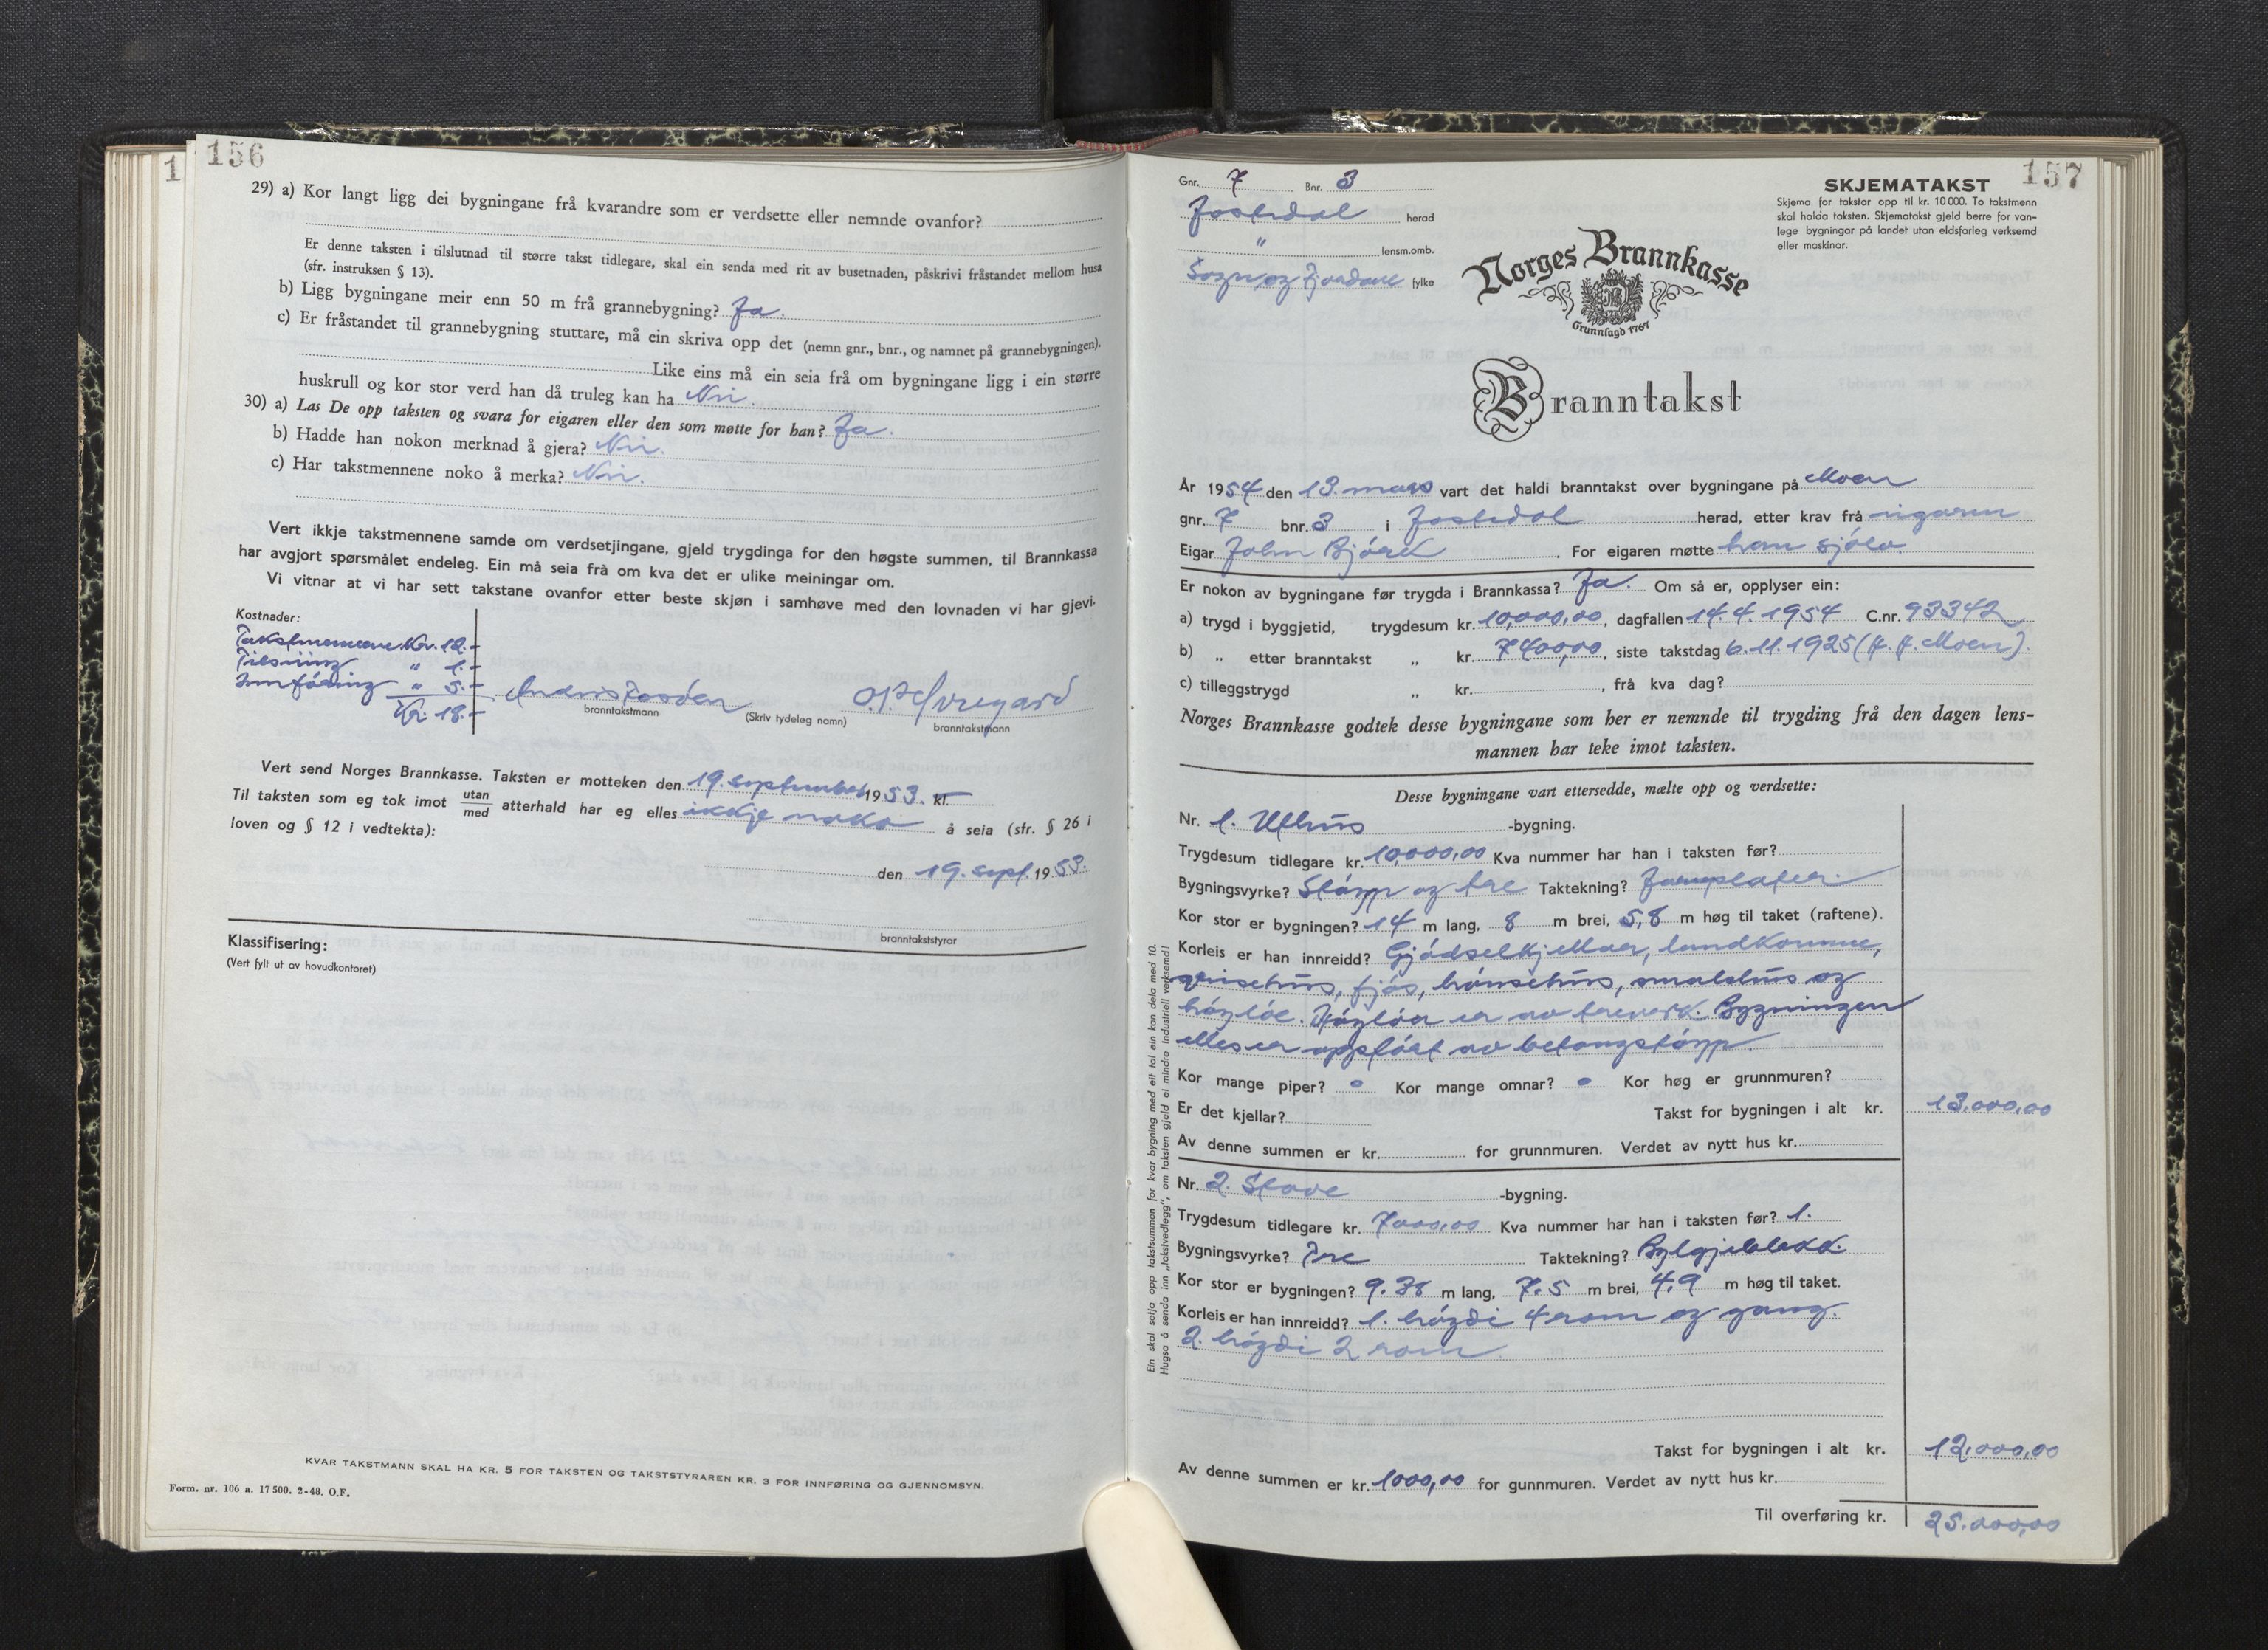 156
1
29) a) Kor langt ligg dei bygningane frå kvarandre som er verdsette eller nemnde ovanfor?
Er denne taksten i tilslutnad til større takst tidlegare, skal ein senda med rit av busetnaden, påskrivi fråstandet mellom husa
(sfr. instruksen § 13).
b) Ligg bygningane meir enn 50 m frå grannebygning? Ja.
c) Er fråstandet til grannebygning stuttare, må ein skriva opp det (nemn gnr., bnr., og namnet på grannebygningen).
Like eins må ein seia frå om bygningane ligg i ein større
huskrull og kor stor verd han då truleg kan ha Nei.
30) a) Las De opp taksten og svara for eigaren eller den som møtte for han? Ja.
b) Hadde han nokon merknad å gjera? Nei.
c) Har takstmennene noko å merka? Nei.
Vert ikkje takstmennene samde om verdsetjingane, gjeld trygdinga for den høgste summen, til Brannkassa
har avgjort spørsmålet endeleg. Ein må seia frå om kva det er ulike meiningar om.
Vi vitnar at vi har sett takstane ovanfor etter beste skjøn i samhøve med den lovnaden vi har gjevi.
Kostnader:
Takstmennene. Kr. 12.-
Tilsining " 1.-
Innföring " 5.-
Kr. 18.-
branntakstmann
(Skriv tydeleg namn)
branntakstmann
Vert send Norges Brannkasse. Taksten er motteken den 19. september 1953. kl.
Til taksten som eg tok imot utan/med atterhald har eg elles ikkje noko å seia (sfr. § 26 i
loven og § 12 i vedtekta):
den 19. sept. 1953.
branntakststyrar
Klassifisering:
(Vert fylt ut av hovudkontoret)
KVAR TAKSTMANN SKAL HA KR. 5 FOR TAKSTEN OG TAKSTSTYRAREN KR. 3 FOR INNFØRING OG GJENNOMSYN.
Form. nr. 106 a. 17500. 2-48. O.F.
157
Gnr. 7 Bnr. 3
Jostedal herad
" lensm.omb.
Sogn og Fjordane fylke
SKJEMATAKST
Skjema for takstar opp til kr. 10 000. To takstmenn
skal halda taksten. Skjematakst gjeld berre for van-
lege bygningar på landet utan eldsfarleg verksemd
eller maskinar.
Norges Brannkasse
Grunnlagd 1767
Branntakst
År 1954 den 13. mars vart det haldi branntakst over bygningane på Moen
gnr. 7 bnr. 3 i Jostedal herad, etter krav frå eigaren
Eigar John Bjørk. For eigaren møtte han sjölv
Er nokon av bygningane før trygda i Brannkassa? Ja. Om så er, opplyser ein:
a) trygd i byggjetid, trygdesum kr. 10,000,00, dagfallen 14.4.1954 C.nr. 93342
b) " etter branntakst " kr. 7400,00, siste takstdag 6.11.1925 (J. J. Moen).
c) tilleggstrygd " kr. , frå kva dag?
Norges Brannkasse godtek desse bygningane som her er nemnde til trygding frå den dagen lens-
mannen har teke imot taksten.
Desse bygningane vart ettersedde, mælte opp og verdsette:
Nr. 1. Uthus -bygning.
Trygdesum tidlegare kr. 10,000,00 Kva nummer har han i taksten før?
Bygningsvyrke? Stöyp og tre Taktekning? Jarnplater.
Kor stor er bygningen? 14 m lang, 8 m brei, 5,8 m høg til taket (raftene).
Korleis er han innreidd? Gjödselkjellar, landkomme,
grisehus, fjös, hönsehus, smalehus og
höylöe. Höylöa er av treverk. Bygningen
elles er oppfört av betongstöyp.
Kor mange piper? 0 Kor mange omnar? 0 Kor høg er grunnmuren?
Er det kjellar? Takst for bygningen i alt kr. 13.000,00
Av denne summen er kr. for grunnmuren. Verdet av nytt hus kr.
Nr. 2. Stove -bygning.
Trygdesum tidlegare kr. 7000,00 Kva nummer har han i taksten før? 1.
Bygningsvyrke? Tre Taktekning? Bylgjeblekk.
Kor stor er bygningen? 9.38 m lang, 7.5 m brei, 4,9 m høg til taket.
Korleis er han innreidd? 1. högdi 4 rom og gang.
2. högdi 2 rom.
Takst for bygningen i alt kr. 12.000,00
Av denne summen er kr. 1000,00 for gunnmuren. Verdet av nytt hus kr.
Til overføring kr. 25.000,00
Ein skal setja opp takstsummen for kvar bygning med eit tal ein kan dela med 10.
Hugsa å senda inn „takstvedlegg“, om taksten gjeld ei mindre industriell verksemd!